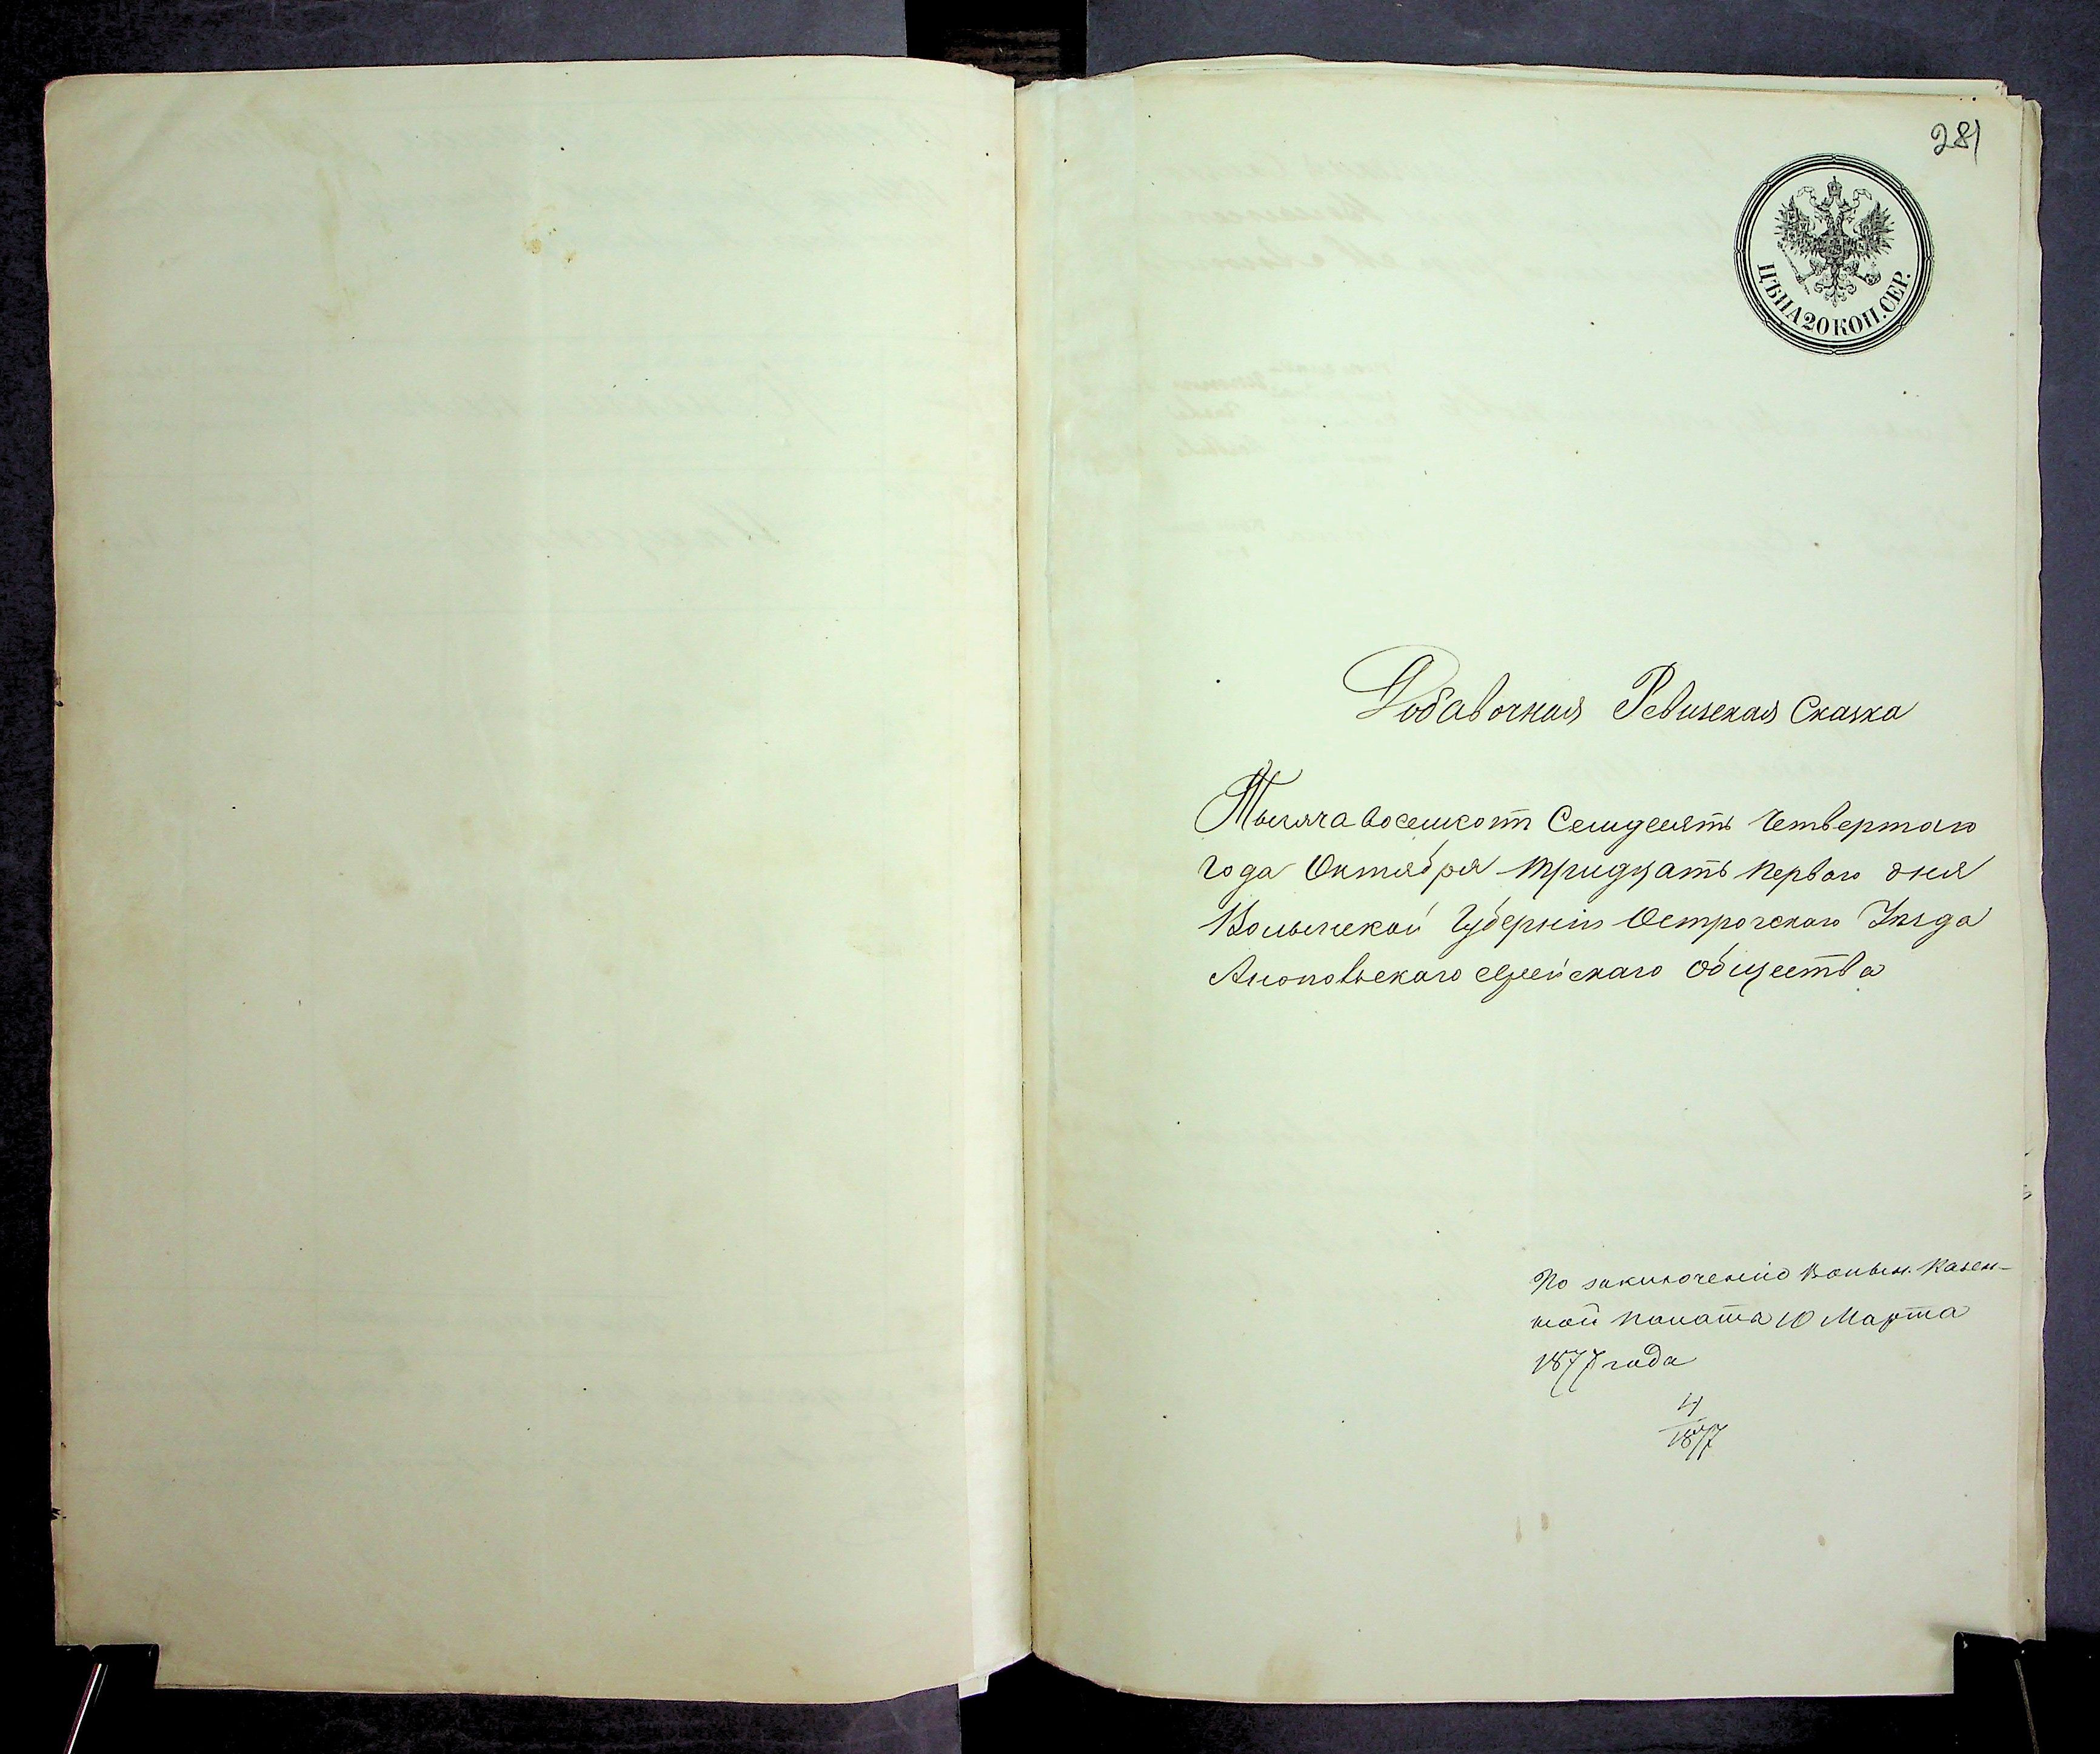 281
ЦѢНА 20 КОП. СЕР.
Добавочная Ревизская Сказка
Тысяча восемсотъ Семдесятъ Четвертаго
года Октября тридцать перваго дня
Волынской Губерніи Острогскаго Уѣзда
Аннопольскаго еврейскаго общества
По заключенію Волын. Казен-
ной палаты 10 Марта
1877 года
4
1877